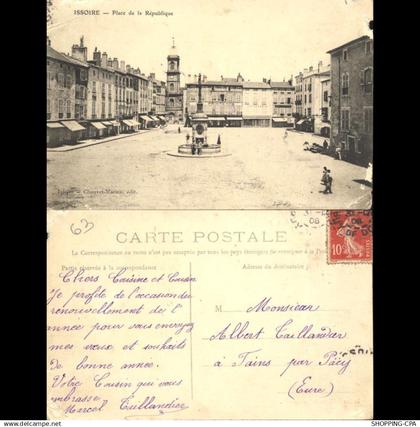 ISSOIRE — Place de la République
Chauvet-Marion, édit.
63
CARTE POSTALE
La Correspondance au recto n'est pas acceptée par tous les pays étrangers (Se renseigner à la Poste)
Partie réservée à la correspondance
Adresse du destinataire
Chers Cousine et Cousin
Je profite de l'occasion du
renouvellement de l'
année pour vous envoyer
mes vœux et souhaits
de bonne année.
Votre Cousin qui vous
embrasse
Marcel Taillandier
M Monsieur
Albert Taillandier
à Fains par Pacy
(Eure)
10